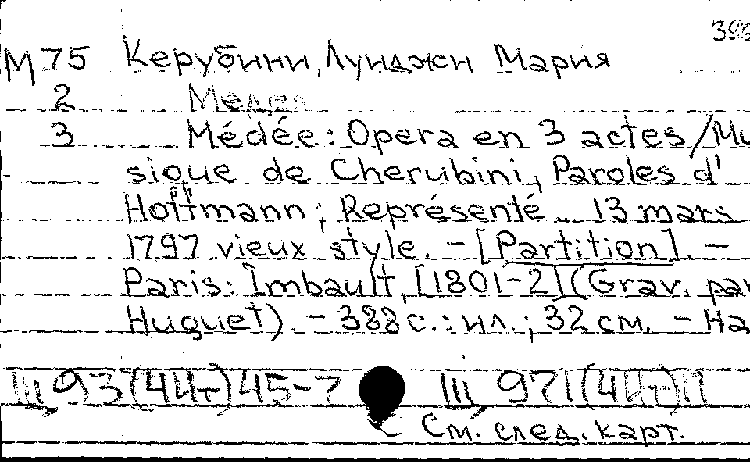 M75 Керубини, Луиджи Мария
2 Медея
3 Médée: Opera en 3 actes/Mu
sique de Cherubini, Paroles d'
Hoffmann; Représenté .. 13 mars
1797 vieux style. – [Partition]. –
Paris: Imbault, [1801-2](Grav. par
Huguet). – 388 с.: ил.; 32 см. – На
Ш 93(4Ит)45-7 Ш 971(4Ит)
См. след. карт.